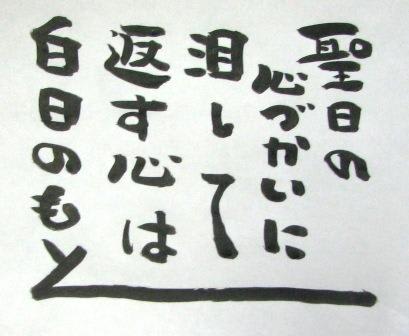 聖日の
心づかいに
泪して
返す心は
白日のもと